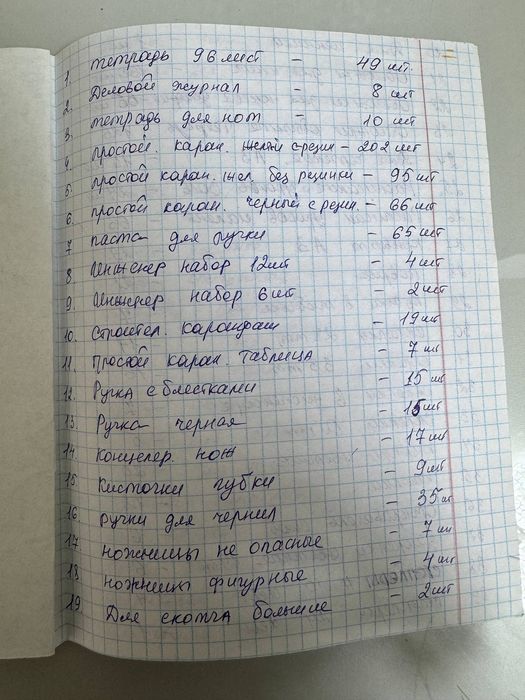 1. тетрадь 96 лист - 49 шт.
2. Деловой журнал - 8 шт
3. тетрадь для нот - 10 шт
4. простой. каран. желтый с резин - 202 шт
5. простой каран. жел. без резинки - 95 шт
6. простой каран. черный с резин. - 66 шт
7 паста для ручки - 65 шт
8. Инженер набор 12шт - 4 шт
9. Инженер набор 6 шт - 2 шт
10. Строител. карандаш - 19 шт
11. Простой каран. таблица - 7 шт
12. Ручка с блестками - 15 шт
13. Ручка черная - 15 шт
14 Концеляр. нож - 17 шт
15 Кисточки губки - 9 шт
16. ручки для чернил - 35 шт
17 ножницы не опасные - 7 шт
18 ножницы фигурные - 4 шт
19 Для скотча большие - 2 шт